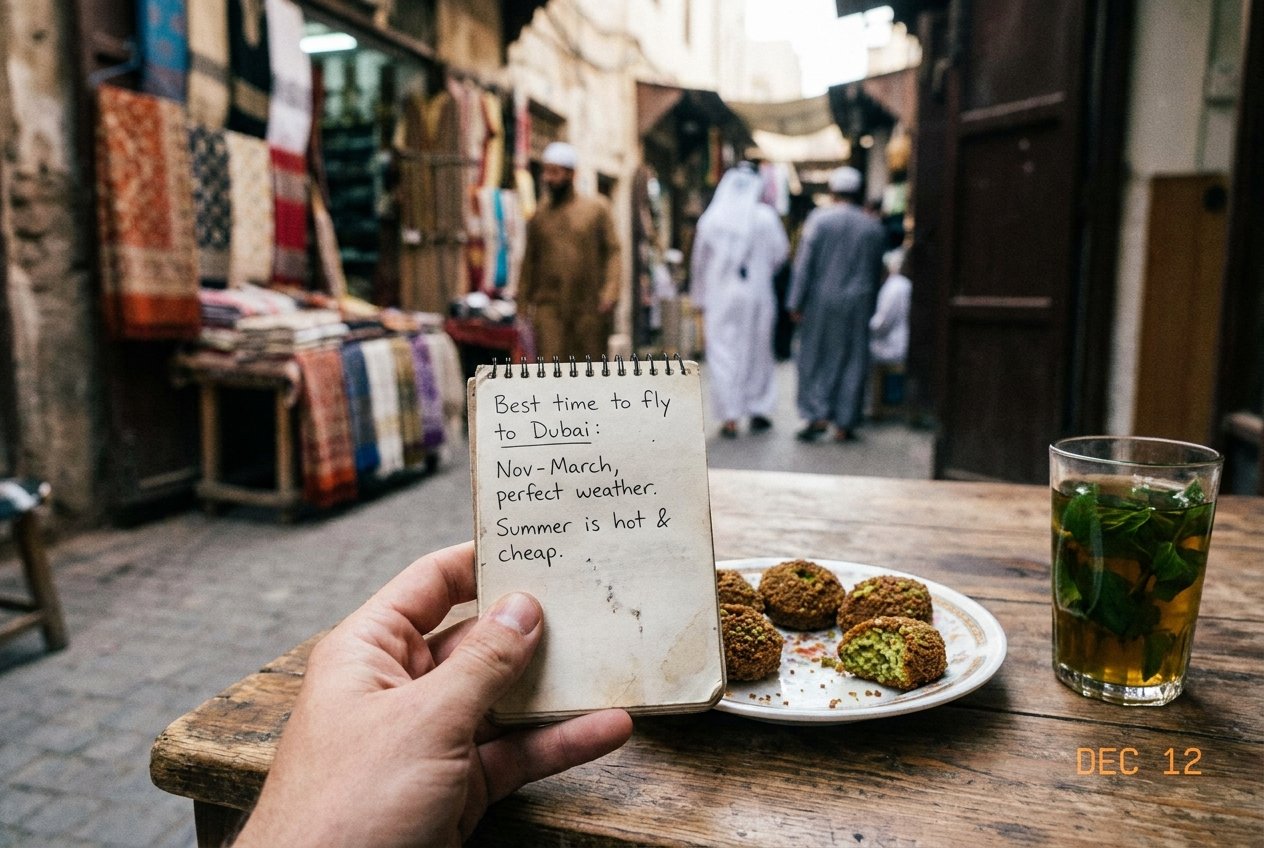 Best time to fly
to Dubai:
Nov-March,
perfect weather.
Summer is hot &
cheap.
DEC 12